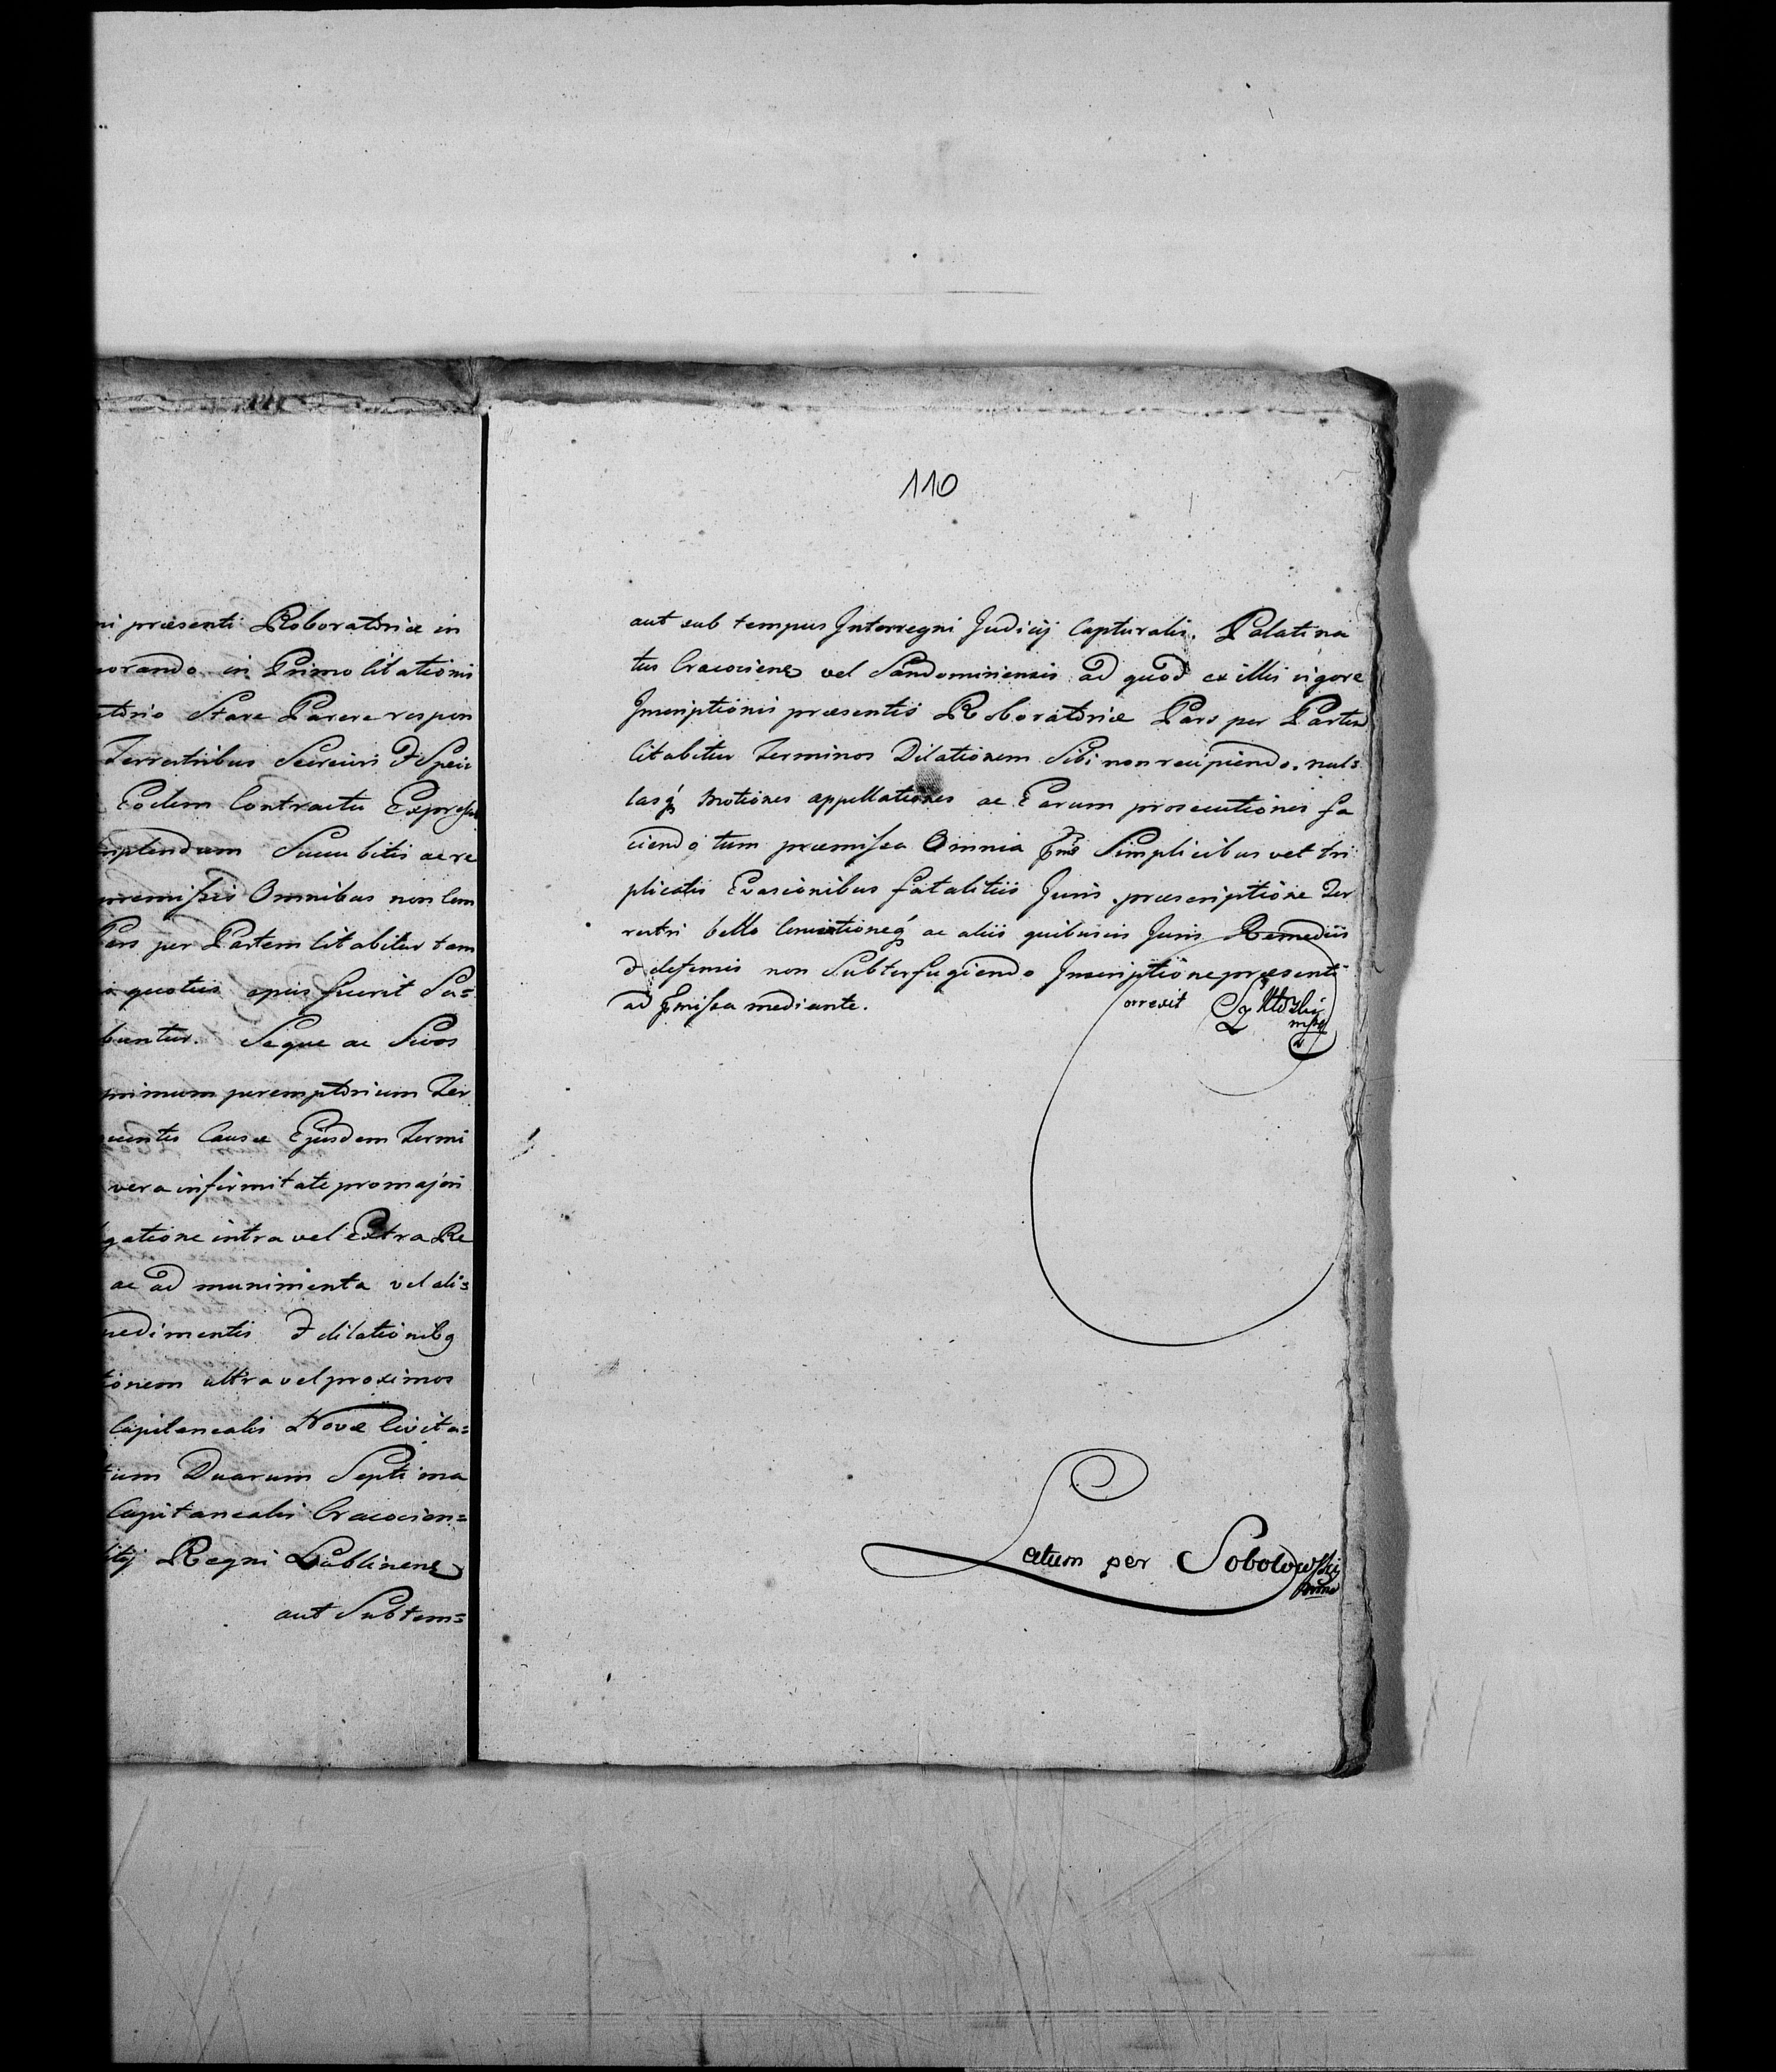 ni præsenti Roboratoriæ in
orando in Primo Citationis
torio Stare Parere respon
Terrestribus
Eodem Contractu Express
mplendum Succubitis ac re
præmissis Omnibus non Com
Pars per Partem Citabitur tam
quoties opus fuerit Sa=
buntur. Seque ac Suos
primum peremptorium Ter
Causæ Ejusdem Termi
vera infirmitate pro majori
gatione intra vel Extra Re
ac ad munimenta vel ali=
pedimentis & dilationibq
tionem ultra vel proximos
Capitanealis Novæ Civita=
tum Duarum Septima
Capitanealis Cracovien=
Regni Lublinens
aut Sub tem=
110
aut sub tempus Interregni Judicij Capturalis. Palatina
tus Cracoviens vel Sandomiriensis ad quod ex illis vigore
Inscriptionis præsentis Roboratoriæ Pars per Partem
Citabitur Terminos Dilationem Sibi non recipiendo. nul=
lasq Motiones appellationes ac Earum prosecutiones fa
ciendo tum præmissa Omnia Simplicibus vel tri
plicatis Evasionibus fatalitiis Juris præscriptione Ter
restri bello Conventioneq ac aliis quibusvis Juris Remediis
& defensis non Subterfugiendo Inscriptione præsenti
ad pmissa mediante.
Correxit
Latum per Sobolowski